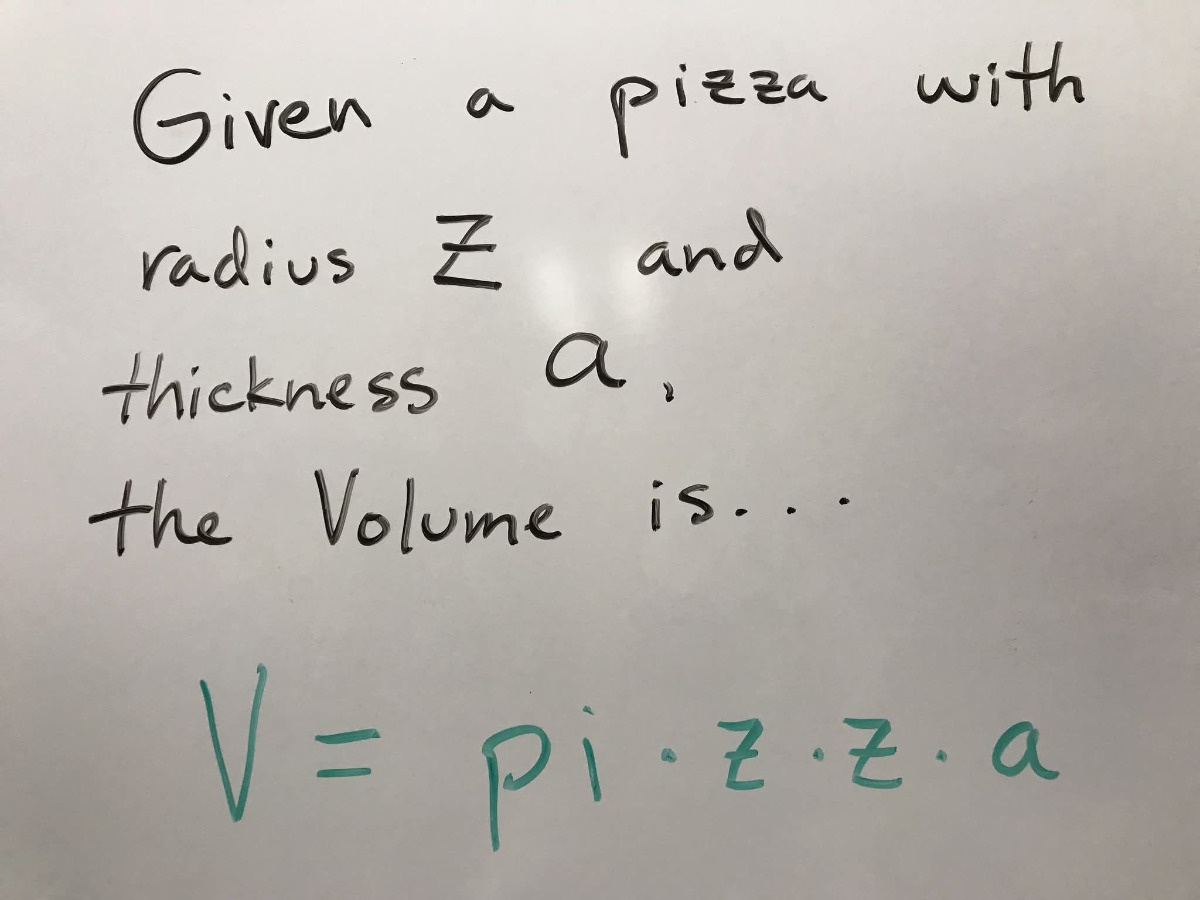 Given a pizza with
radius z and
thickness a,
the Volume is...
V = pi · z · z · a